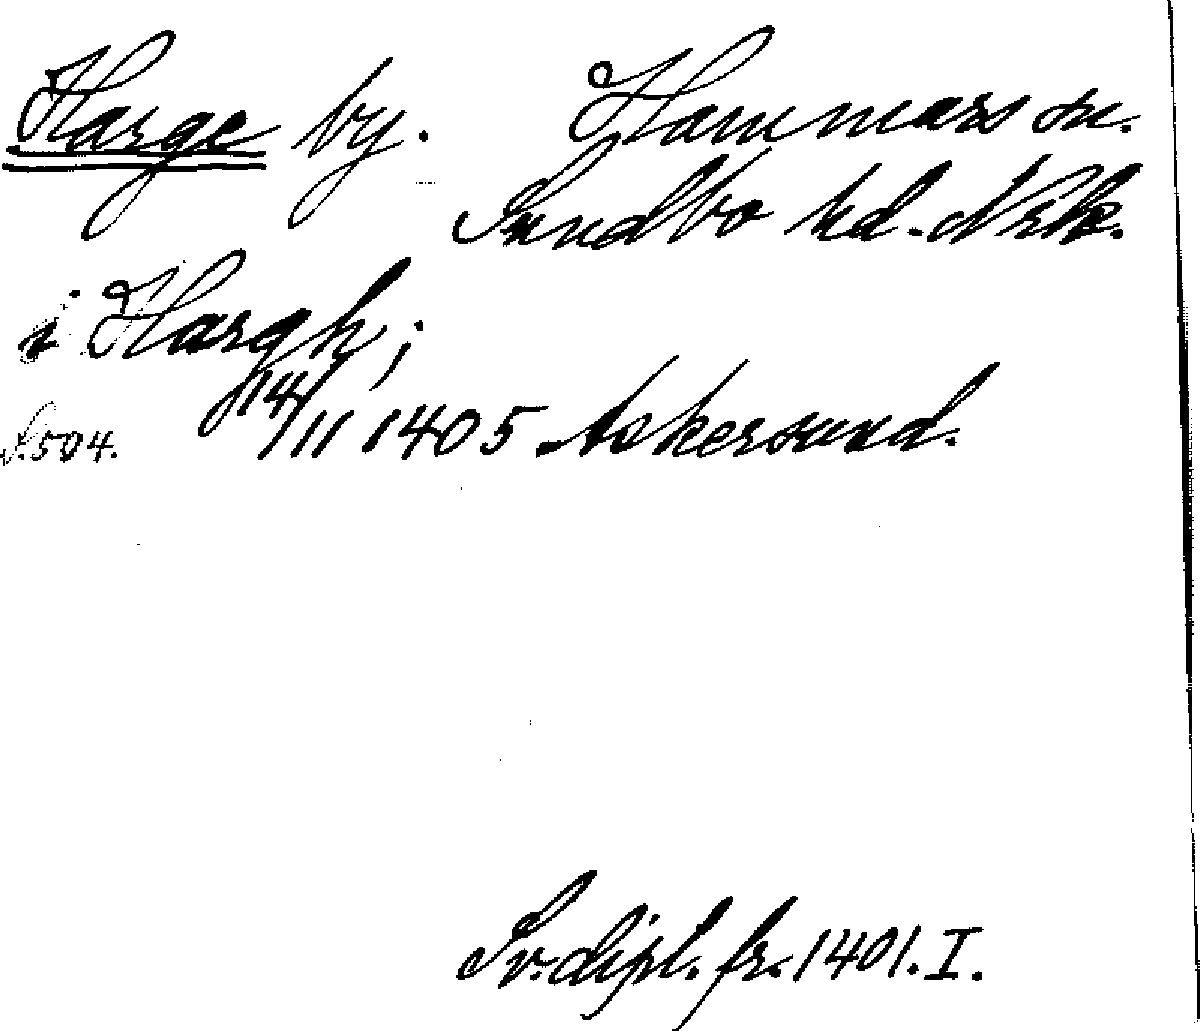 Harge by. Hammars sn.
Sundbo hd. Nrk.
i Hargh;
14/11 1405 Askersund.
S. 504.
Sv. dipl. fr. 1401. I.